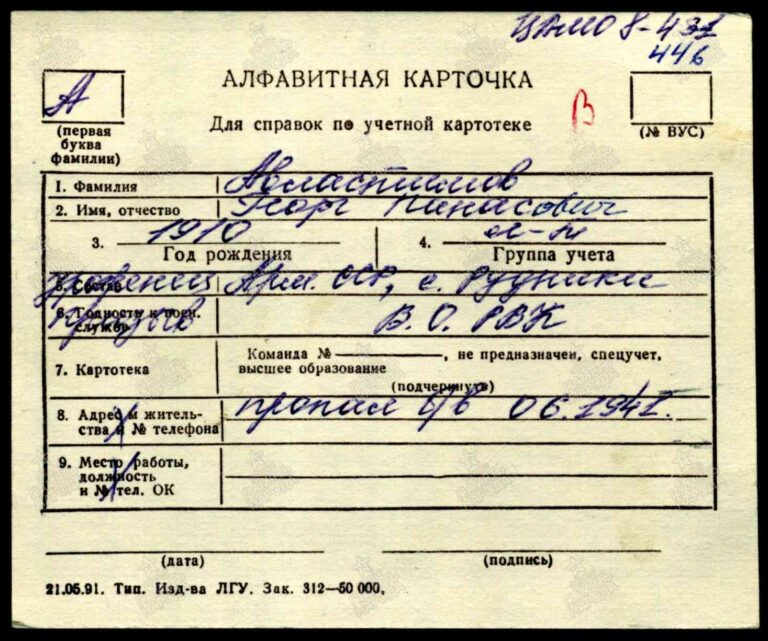 ЦАМО 8-431
446
А
(первая
буква
фамилии)
АЛФАВИТНАЯ КАРТОЧКА
Для справок по учетной картотеке
В
(№ ВУС)
1. Фамилия
2. Имя, отчество Георг Панасович
3. 1910
Год рождения
4.
Группа учета
5. Состав Арм. ССР, с. Рудники
6. Годность к воен.
службе
Призыв В. О. РВК
7. Картотека
Команда № , не предназначен, спецучет,
высшее образование
(подчеркнуть)
8. Адрес м житель-
ства и № телефона
пропал б/в 06.1941.
9. Место работы,
должность
и № тел. ОК
(дата) (подпись)
21.05.91. Тип. Изд-ва ЛГУ. Зак. 312—50 000.